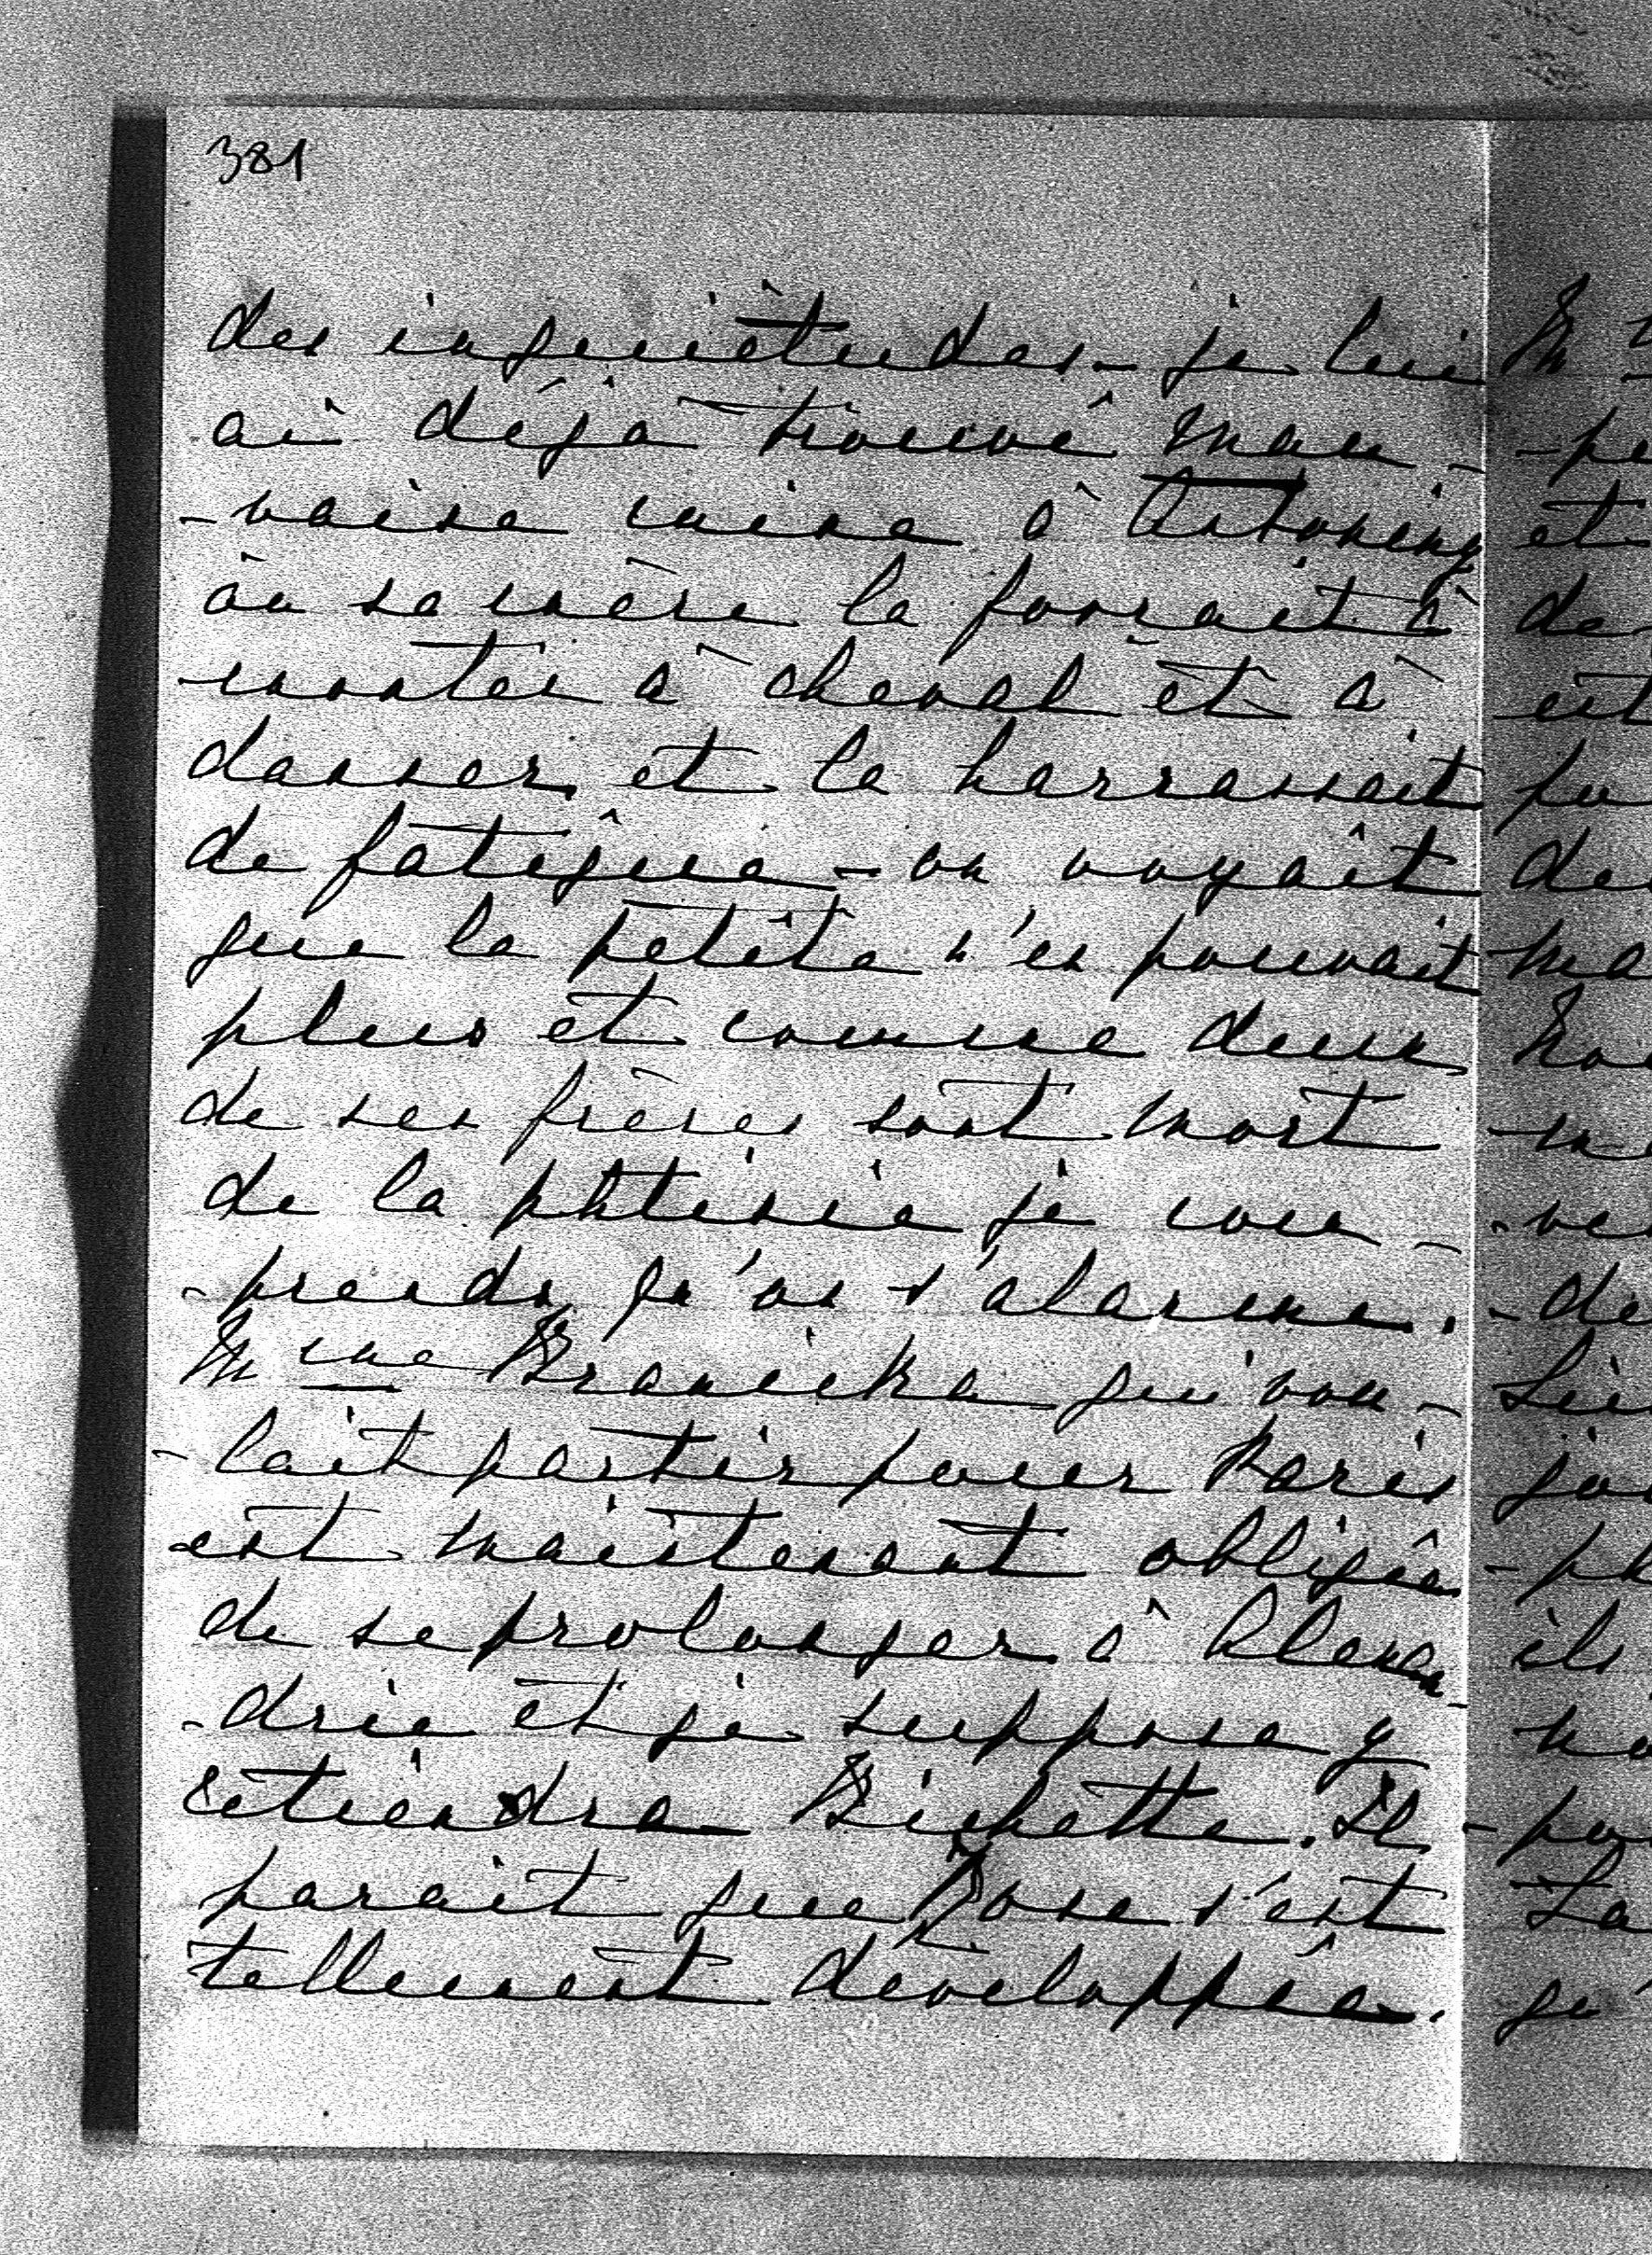 381
des inquiètudes - je lui
ai déjà trouvé mau-
-vaise mine à Antoniny
ou sa mère la forçait à
monter à cheval et à
danser et la harrassait
de fatigue - on voyait
que la petite n'en pouvait
plus et comme deux
de ses frères sont mort
de la phtisie je com-
-prends qu'on s'alarme.
Mme Branicka qui vou-
-lait partir pour Paris
est maintenant obligée
de se prolonger à Alexan-
-drie et je suppose y
retiendra Bichette. Il
parait que Rose s'est
tellement développée.